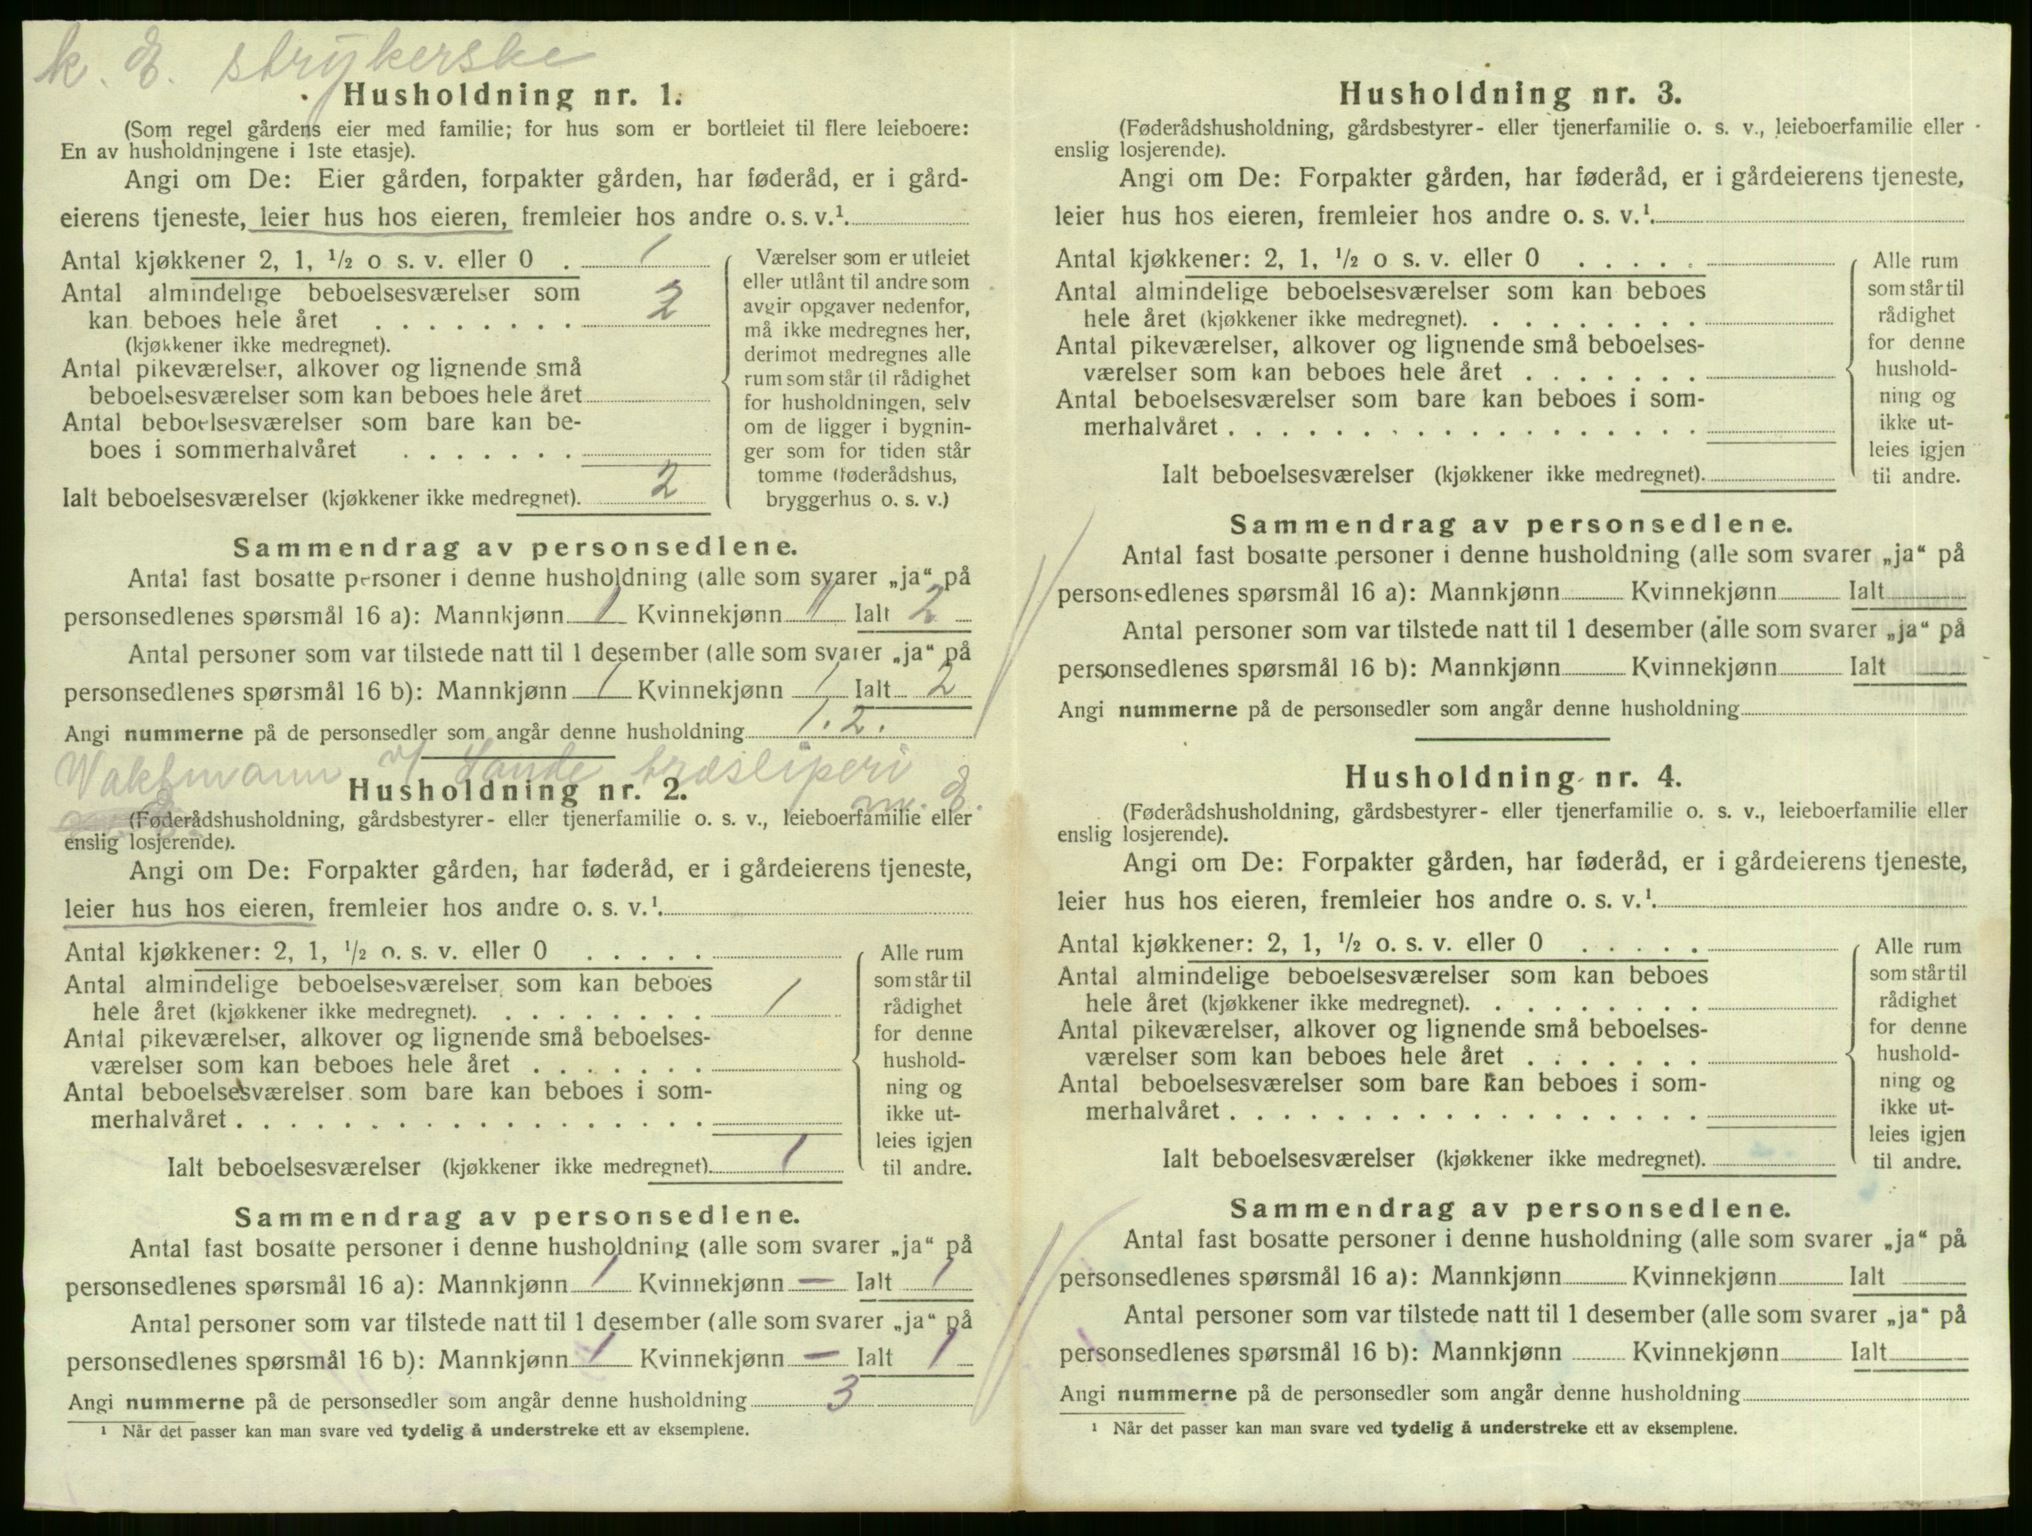 k. E. strykerske
Husholdning nr. 1.
(Som regel gårdens eier med familie; for hus som er bortleiet til flere leieboere:
En av husholdningene i 1ste etasje).
Angi om De: Eier gården, forpakter gården, har føderåd, er i gård-
eierens tjeneste, leier hus hos eieren, fremleier hos andre o. s. v.¹.
Antal kjøkkener 2, 1, ½ o s. v. eller 0 . 1
Antal almindelige beboelsesværelser som
kan beboes hele året . . . . . . . . 2
(kjøkkener ikke medregnet).
Antal pikeværelser, alkover og lignende små
beboelsesværelser som kan beboes hele året
Antal beboelsesværelser som bare kan be-
boes i sommerhalvåret . . . . . . .
Ialt beboelsesværelser (kjøkkener ikke medregnet). 2
Værelser som er utleiet
eller utlånt til andre som
avgir opgaver nedenfor,
må ikke medregnes her,
derimot medregnes alle
rum som står til rådighet
for husholdningen, selv
om de ligger i bygnin-
ger som for tiden står
tomme (føderådshus,
bryggerhus o. s. v.)
Sammendrag av personsedlene.
Antal fast bosatte personer i denne husholdning (alle som svarer „ja“ på
personsedlenes spørsmål 16 a): Mannkjønn 1 Kvinnekjønn 1 Ialt 2
Antal personer som var tilstede natt til 1 desember (alle som svarer „ja“ på
personsedlenes spørsmål 16 b): Mannkjønn 1 Kvinnekjønn 1 Ialt 2
Angi nummerne på de personsedler som angår denne husholdning 1. 2.
Waktmann v/ Sande træsliperi
m. E.
Husholdning nr. 2.
(Føderådshusholdning, gårdsbestyrer- eller tjenerfamilie o. s. v., leieboerfamilie eller
enslig losjerende).
Angi om De: Forpakter gården, har føderåd, er i gårdeierens tjeneste,
leier hus hos eieren, fremleier hos andre o. s. v.¹.
Antal kjøkkener: 2, 1, ½ o. s. v. eller 0 . . . . .
Antal almindelige beboelsesværelser som kan beboes
hele året (kjøkkener ikke medregnet). . . . . . . . . 1
Antal pikeværelser, alkover og lignende små beboelses-
værelser som kan beboes hele året . . . . . . .
Antal beboelsesværelser som bare kan beboes i som-
merhalvåret . . . . . . . . . . . . . . . . . .
Ialt beboelsesværelser (kjøkkener ikke medregnet). 1
Alle rum
som står til
rådighet
for denne
hushold-
ning og
ikke ut-
leies igjen
til andre.
Sammendrag av personsedlene.
Antal fast bosatte personer i denne husholdning (alle som svarer „ja“ på
personsedlenes spørsmål 16 a): Mannkjønn 1 Kvinnekjønn — Ialt 1
Antal personer som var tilstede natt til 1 desember (alle som svarer „ja“ på
personsedlenes spørsmål 16 b): Mannkjønn 1 Kvinnekjønn — Ialt 1
Angi nummerne på de personsedler som angår denne husholdning 3
¹ Når det passer kan man svare ved tydelig å understreke ett av eksemplene.
Husholdning nr. 3.
(Føderådshusholdning, gårdsbestyrer- eller tjenerfamilie o. s. v., leieboerfamilie eller
enslig losjerende).
Angi om De: Forpakter gården, har føderåd, er i gårdeierens tjeneste,
leier hus hos eieren, fremleier hos andre o. s. v.¹.
Antal kjøkkener: 2, 1, ½ o s. v. eller 0 . . . . .
Antal almindelige beboelsesværelser som kan beboes
hele året (kjøkkener ikke medregnet). . . . . . . . .
Antal pikeværelser, alkover og lignende små beboelses-
værelser som kan beboes hele året . . . . . . .
Antal beboelsesværelser som bare kan beboes i som-
merhalvåret . . . . . . . . . . . . . . . . . .
Ialt beboelsesværelser (kjøkkener ikke medregnet).
Alle rum
som står til
rådighet
for denne
hushold-
ning og
ikke ut-
leies igjen
til andre.
Sammendrag av personsedlene.
Antal fast bosatte personer i denne husholdning (alle som svarer „ja“ på
personsedlenes spørsmål 16 a): Mannkjønn Kvinnekjønn Ialt
Antal personer som var tilstede natt til 1 desember (alle som svarer „ja“ på
personsedlenes spørsmål 16 b): Mannkjønn Kvinnekjønn Ialt
Angi nummerne på de personsedler som angår denne husholdning
Husholdning nr. 4.
(Føderådshusholdning, gårdsbestyrer- eller tjenerfamilie o. s. v., leieboerfamilie eller
enslig losjerende).
Angi om De: Forpakter gården, har føderåd, er i gårdeierens tjeneste,
leier hus hos eieren, fremleier hos andre o. s. v.¹.
Antal kjøkkener: 2, 1, ½ o. s. v. eller 0 . . . . .
Antal almindelige beboelsesværelser som kan beboes
hele året (kjøkkener ikke medregnet). . . . . . . . .
Antal pikeværelser, alkover og lignende små beboelses-
værelser som kan beboes hele året . . . . . . .
Antal beboelsesværelser som bare kan beboes i som-
merhalvåret . . . . . . . . . . . . . . . . . .
Ialt beboelsesværelser (kjøkkener ikke medregnet).
Alle rum
som står til
rådighet
for denne
hushold-
ning og
ikke ut-
leies igjen
til andre.
Sammendrag av personsedlene.
Antal fast bosatte personer i denne husholdning (alle som svarer „ja“ på
personsedlenes spørsmål 16 a): Mannkjønn Kvinnekjønn Ialt
Antal personer som var tilstede natt til 1 desember (alle som svarer „ja“ på
personsedlenes spørsmål 16 b): Mannkjønn Kvinnekjønn Ialt
Angi nummerne på de personsedler som angår denne husholdning
¹ Når det passer kan man svare ved tydelig å understreke ett av eksemplene.